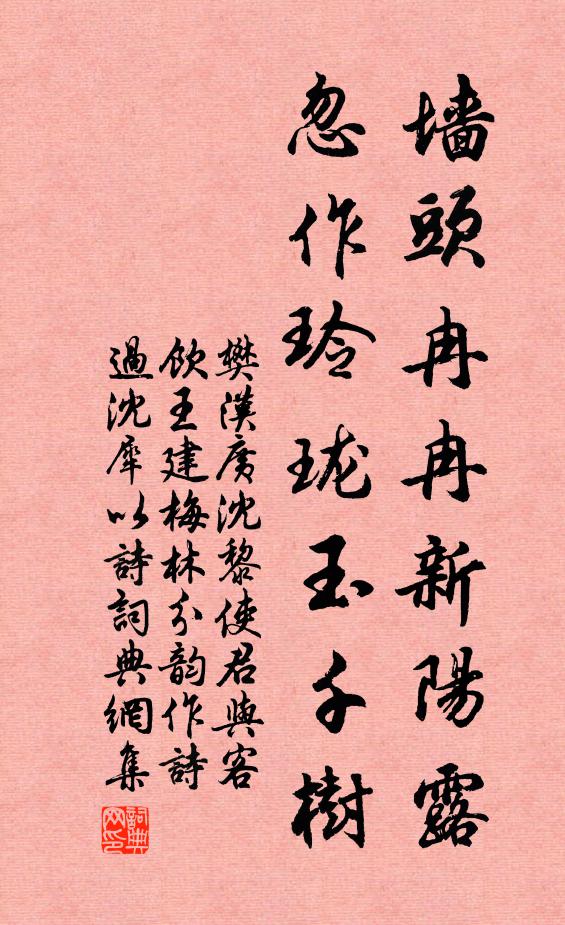 墙頭冉冉新陽露
忽作玲瓏玉千樹
樊漢廣沈黎使君與客
飲王建梅林分韵作詩
過沈犀以詩詞典網集
詞典网印